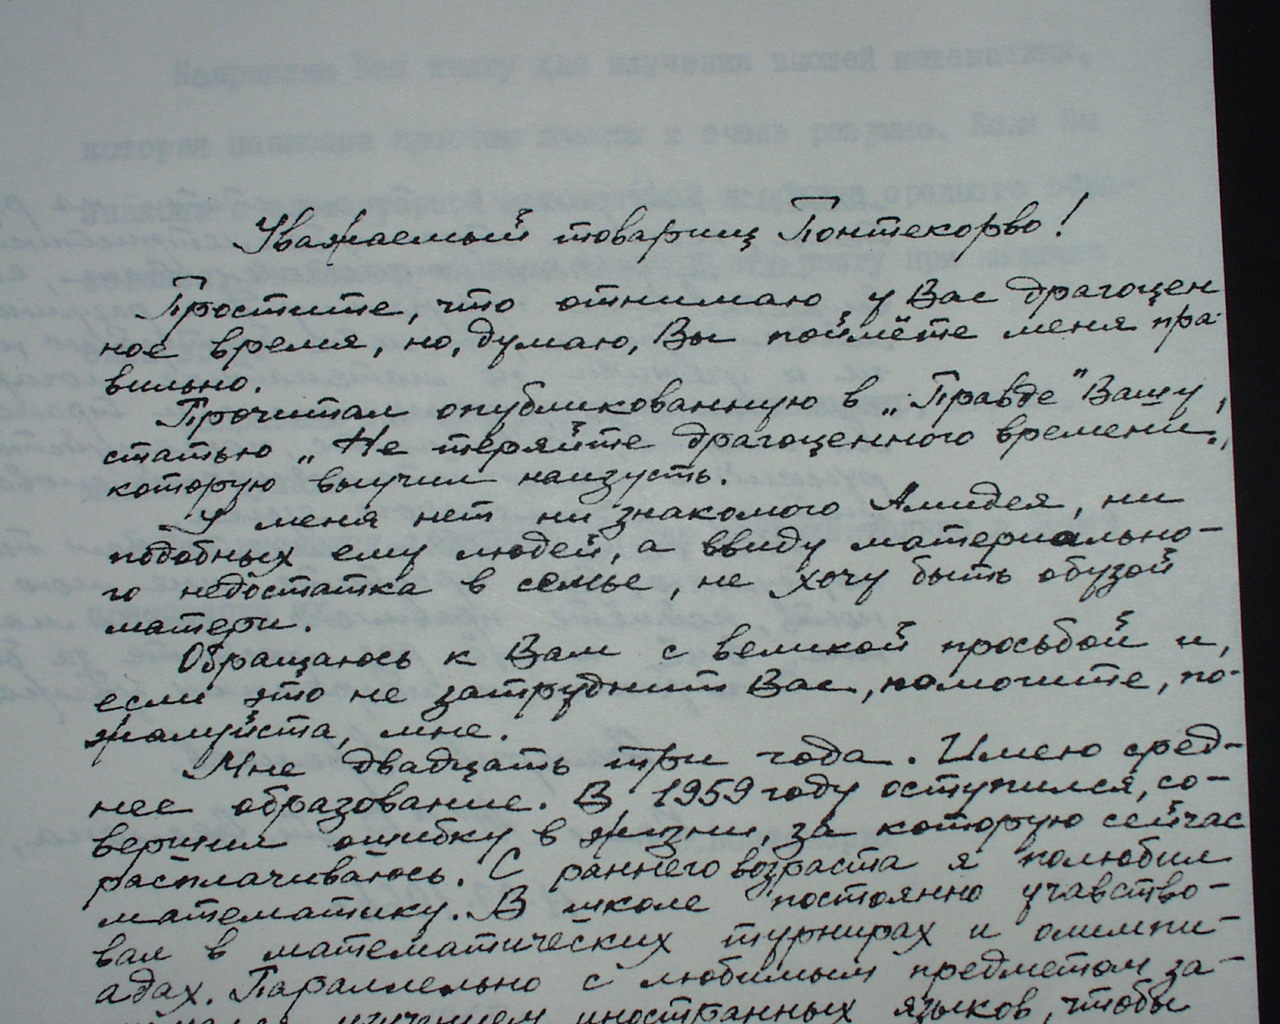 Направляю Вам книгу для изучения высшей математики,
которая написана простым языком и очень разумно. Если Вы
Уважаемый товарищ Понтекорво!
Простите, что отнимаю у Вас драгоцен
ное время, но, думаю, Вы поймёте меня пра-
вильно.
Прочитал опубликованную в „Правде" Вашу
статью „Не теряйте драгоценного времени",
которую выучил наизусть.
У меня нет ни знакомого Амидея, ни
подобных ему людей, а ввиду материально-
го недостатка в семье, не хочу быть обузой
матери.
Обращаюсь к Вам с великой просьбой и,
если это не затруднит Вас, помогите, по-
жалуйста, мне.
Мне двадцать три года. Имею сред-
нее образование. В 1959 году оступился, со-
вершил ошибку в жизни, за которую сейчас
расплачиваюсь. С раннего возраста я полюбил
математику. В школе постоянно учавство-
вал в математических турнирах и олимпи-
адах. Параллельно с любимым предметом за-
нимался изучением иностранных языков, чтобы